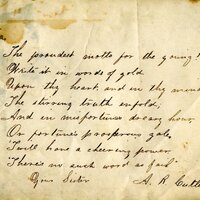 The proudest motto for the young!
Write it in words of gold
Upon thy heart, and in thy mind
The stirring truth enfold,
And in misfortunes dreary hour
Or fortune's prosperous gale
'Twill have a cheering power
"There's no such word as fail"
Your Sister A. R. Cutle